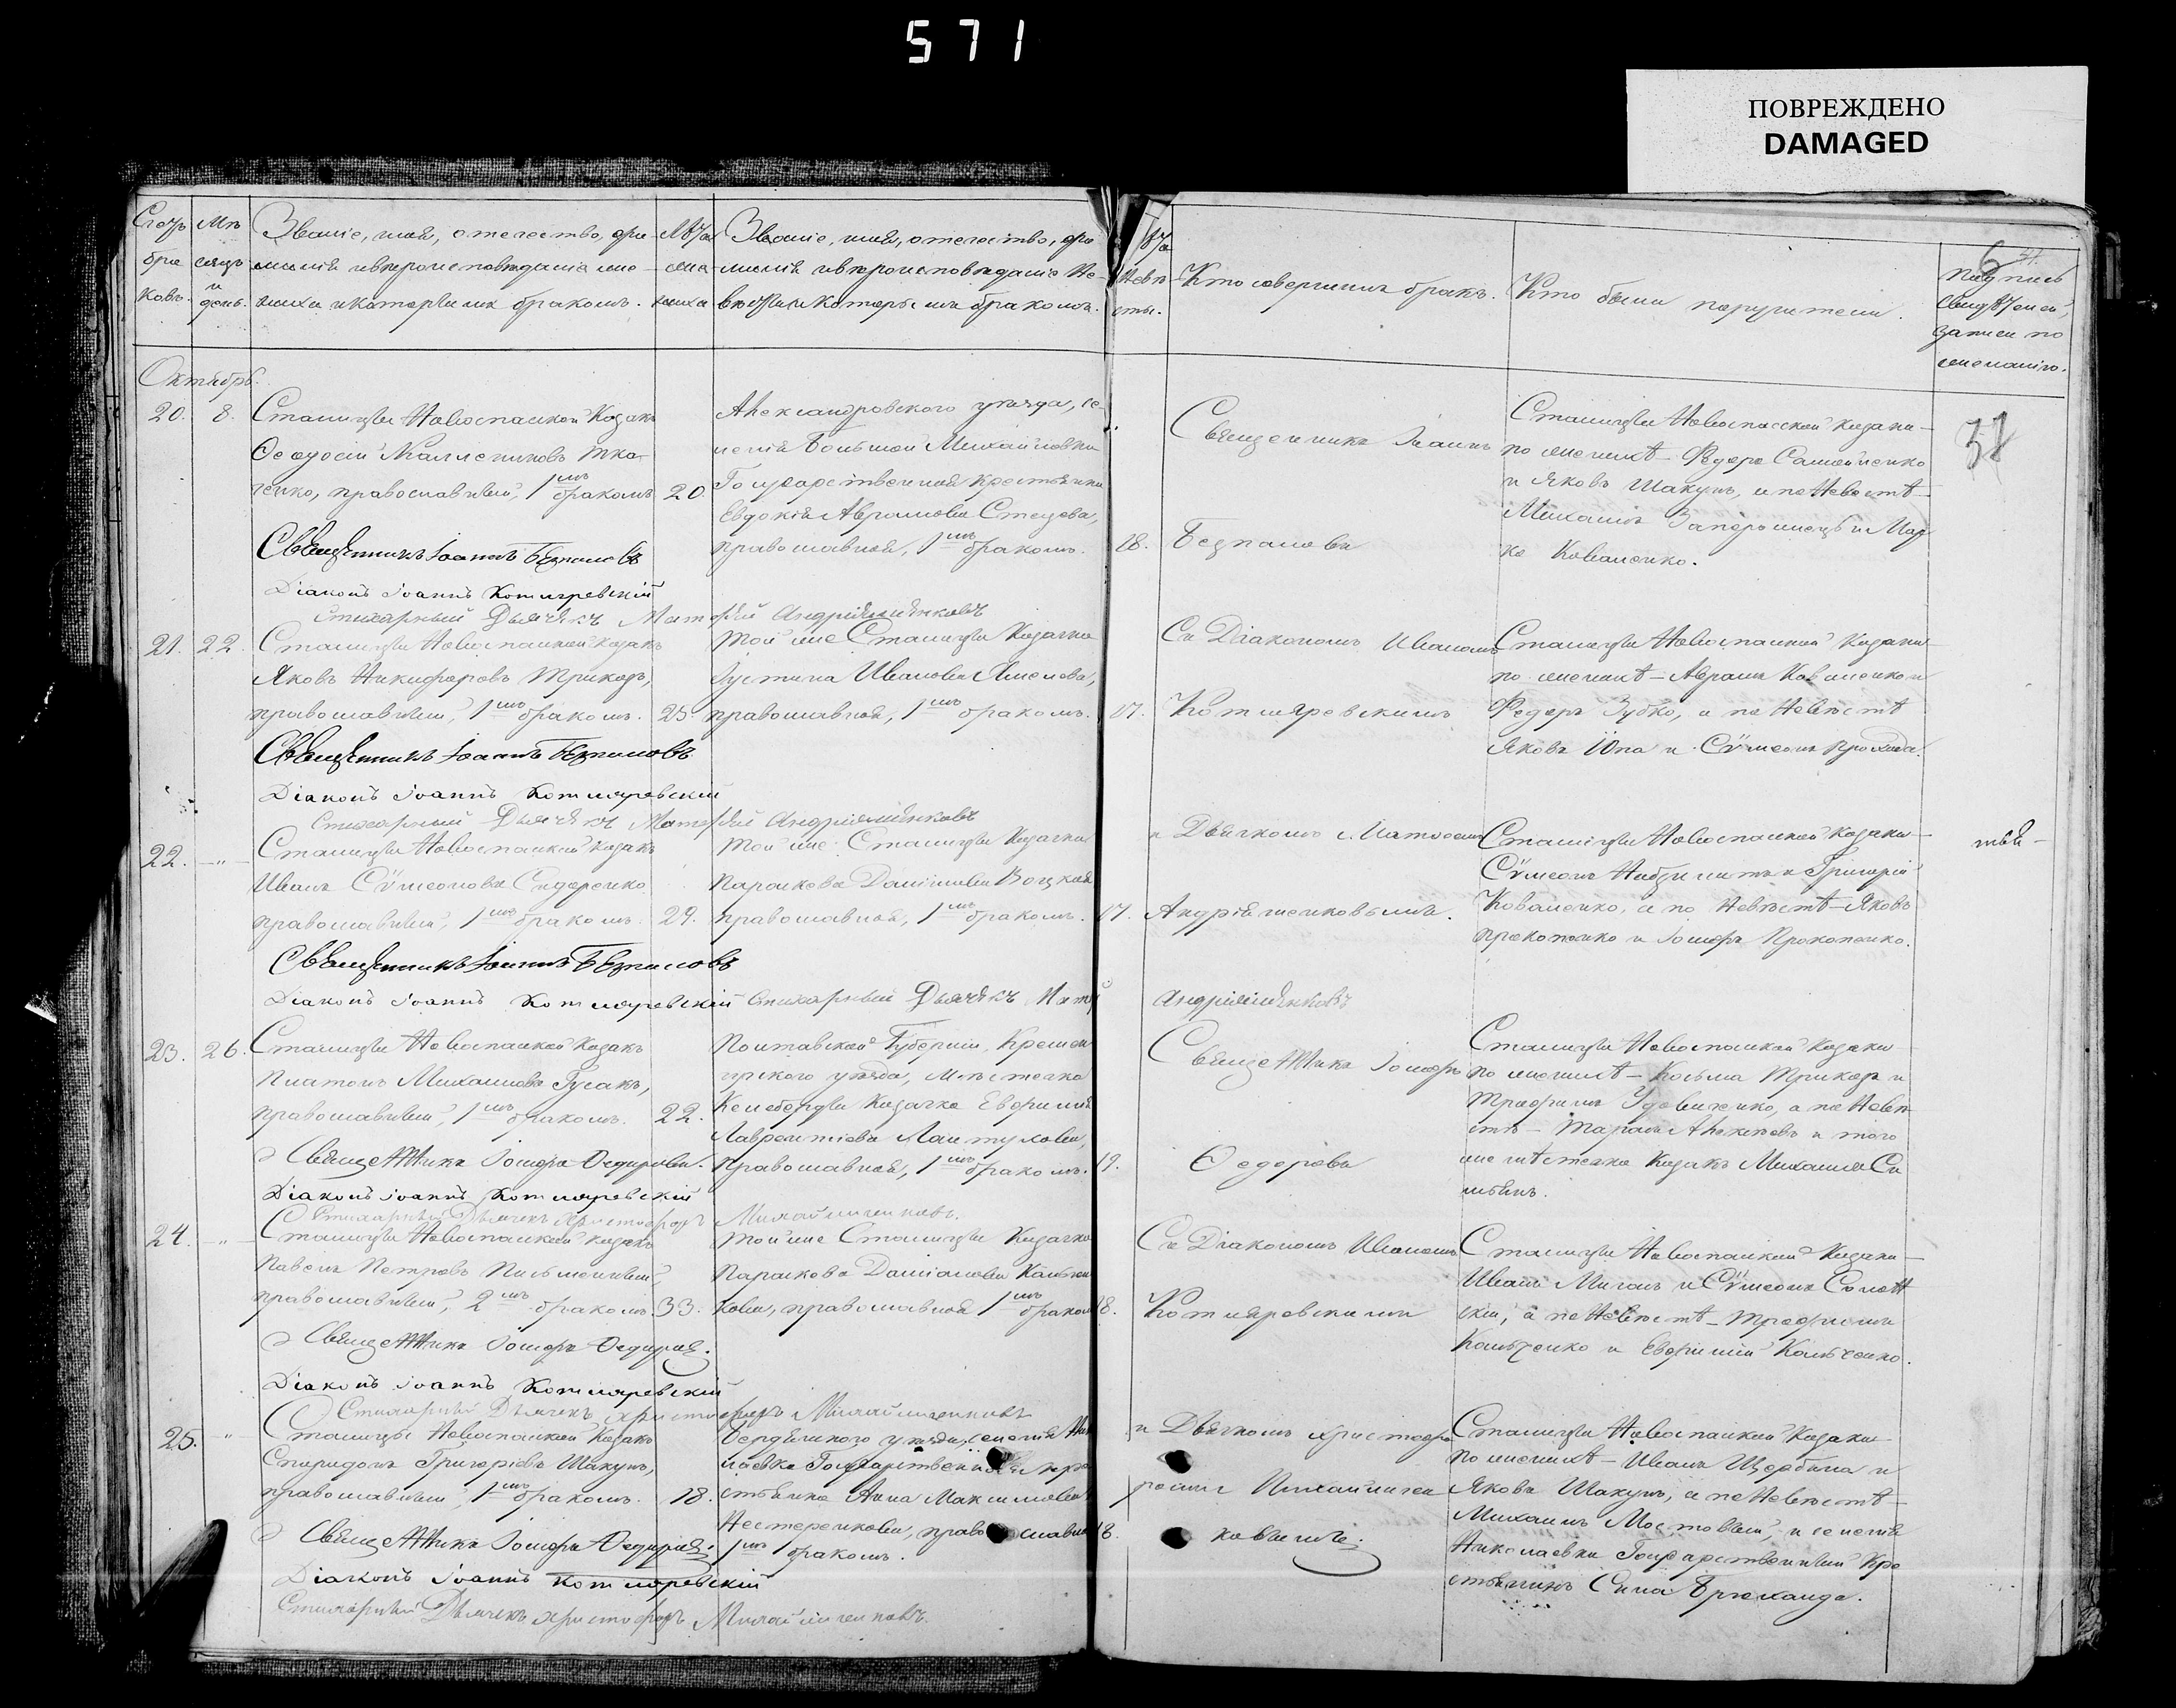 571
ПОВРЕЖДЕНО
DAMAGED
Счетъ браковъ.
Мѣсяцъ и день.
Званіе, имя, отечество, фамилія и вѣроисповѣданіе жениха и которымъ бракомъ.
Лѣта жениха
Званіе, имя, отечество, фамилія и вѣроисповѣданіе невѣсты и которымъ бракомъ.
Лѣта невѣсты.
Кто совершилъ бракъ.
Кто были поручители.
6
Подпись свидѣтелей записи по желанію.
Октябрь.
20. 8. Станицы Новоспасской Козакъ
Ѳеодосій Каллениковъ Тка-
ченко, православный, 1мъ бракомъ 20.
Александровскаго уѣзда, се-
ленія Большой Михайловки
Государственная крестьянка
Евдокія Авраамова Стецова,
православная, 1мъ бракомъ. 18.
Священникъ Іоаннъ
Безпаловъ
Станицы Новоспасской козаки
по женихѣ – Федоръ Самойленко
и Яковъ Шакунъ, а по невѣстѣ
Михаилъ Запорожецъ и Мар-
ко Коваленко.
Священникъ Іоаннъ Безпаловъ
Діаконъ Іоаннъ Котляревскій
Стихарный Дьячекъ Матѳей Андріяшенковъ
21. 22. Станицы Новоспасской козакъ
Яковъ Никифоровъ Трикозъ,
православный, 1мъ бракомъ. 25.
Той же Станицы Козачка
Іустина Иванова
православная, 1мъ бракомъ. 17.
Съ Діакономъ Иваномъ
Котляревскимъ
Станицы Новоспасской Козаки
по женихѣ – Авраамъ Коваленко и
Федоръ Зубко, а по невѣстѣ
Яковъ Юпа и Сѵмеонъ
Священникъ Іоаннъ Безпаловъ
Діаконъ Іоаннъ Котляревскій
Стихарный Дьячекъ Матѳей Андріяшенковъ
22. –„– Станицы Новоспасской козакъ
Иванъ Сѵмеоновъ Сидоренко
православный, 1мъ бракомъ. 29.
Той же Станицы Козачка
Параскева Даніилова
православная, 1мъ бракомъ. 17.
и Дьячкомъ Матѳеемъ
Андріяшенковымъ.
Станицы Новоспасской козаки
Сѵмеонъ и Григорій
Коваленко, а по невѣстѣ – Яковъ
Прокопенко и Іосифъ Прокопенко.
Священникъ Іоаннъ Безпаловъ
Діаконъ Іоаннъ Котляревскій Стихарный Дьячекъ Матѳей
Андріяшенковъ
23. 26. Станицы Новоспасской козакъ
Платонъ Михаиловъ Гусакъ,
православный, 1мъ бракомъ. 22.
Полтавской Губерніи, Кремен-
чугскаго уѣзда, мѣстечка
Келеберды Козачка Евфимія
Лаврентіева
православная, 1мъ бракомъ. 19.
Священникъ Іосифъ
Ѳедоровъ
Станицы Новоспасской козаки
по женихѣ – Косьма Трикозъ и
Трофимъ Удовиченко, а по невѣ-
стѣ – Тарасъ Алексѣевъ и того
же мѣстечка Козакъ Михаилъ
Священникъ Іосифъ Ѳедоровъ.
Діаконъ Іоаннъ Котляревскій
Стихарный Дьячекъ Христофоръ Михайличенковъ.
24. –„– Станицы Новоспасской козакъ
Павелъ Петровъ Письменный,
православный, 2мъ бракомъ. 33.
Той же Станицы Козачка
Параскева Даміанова Кальчен-
кова, православная 1мъ бракомъ 18.
Съ Діакономъ Иваномъ
Котляревскимъ
Станицы Новоспасской Козаки
Иванъ и Сѵмеонъ
а по невѣстѣ – Трофимъ
Кальченко и Евфимій Кальченко.
Священникъ Іосифъ Ѳедоровъ.
Діаконъ Іоаннъ Котляревскій
Стихарный Дьячекъ Христофоръ Михайличенковъ
25. „ Станицы Новоспасской Козакъ
Спиридонъ Григорьевъ Шакунъ,
православный, 1мъ бракомъ. 18.
Бердянскаго уѣзда, селенія Нико-
лаевки Государственная кре-
стьянка Анна Максимова
Нестеренкова, православная 18.
1мъ бракомъ.
и Дьячкомъ Христофо-
ромъ Михайличен-
ковымъ.
Станицы Новоспасской Козаки
по женихѣ – Иванъ Щербина и
Яковъ Шакунъ, а по невѣстѣ –
Михаилъ Мостовый, и селенія
Николаевки Государственный Кре-
стьянинъ Сила
Священникъ Іосифъ Ѳедоровъ.
Діаконъ Іоаннъ Котляревскій
Стихарный Дьячекъ Христофоръ Михайличенковъ.